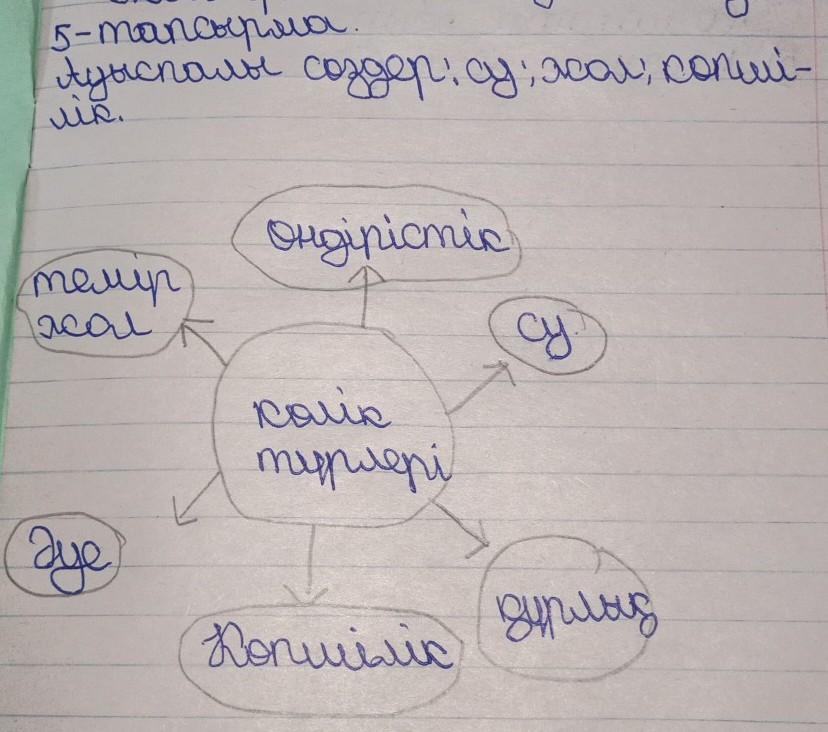 5-тапсырма.
Ауыспалы создер: су; жол; копші-
лік.
Өндірістік
темір
жол
су
көлік
түрлері
Әуе
құрлық
Көпшілік